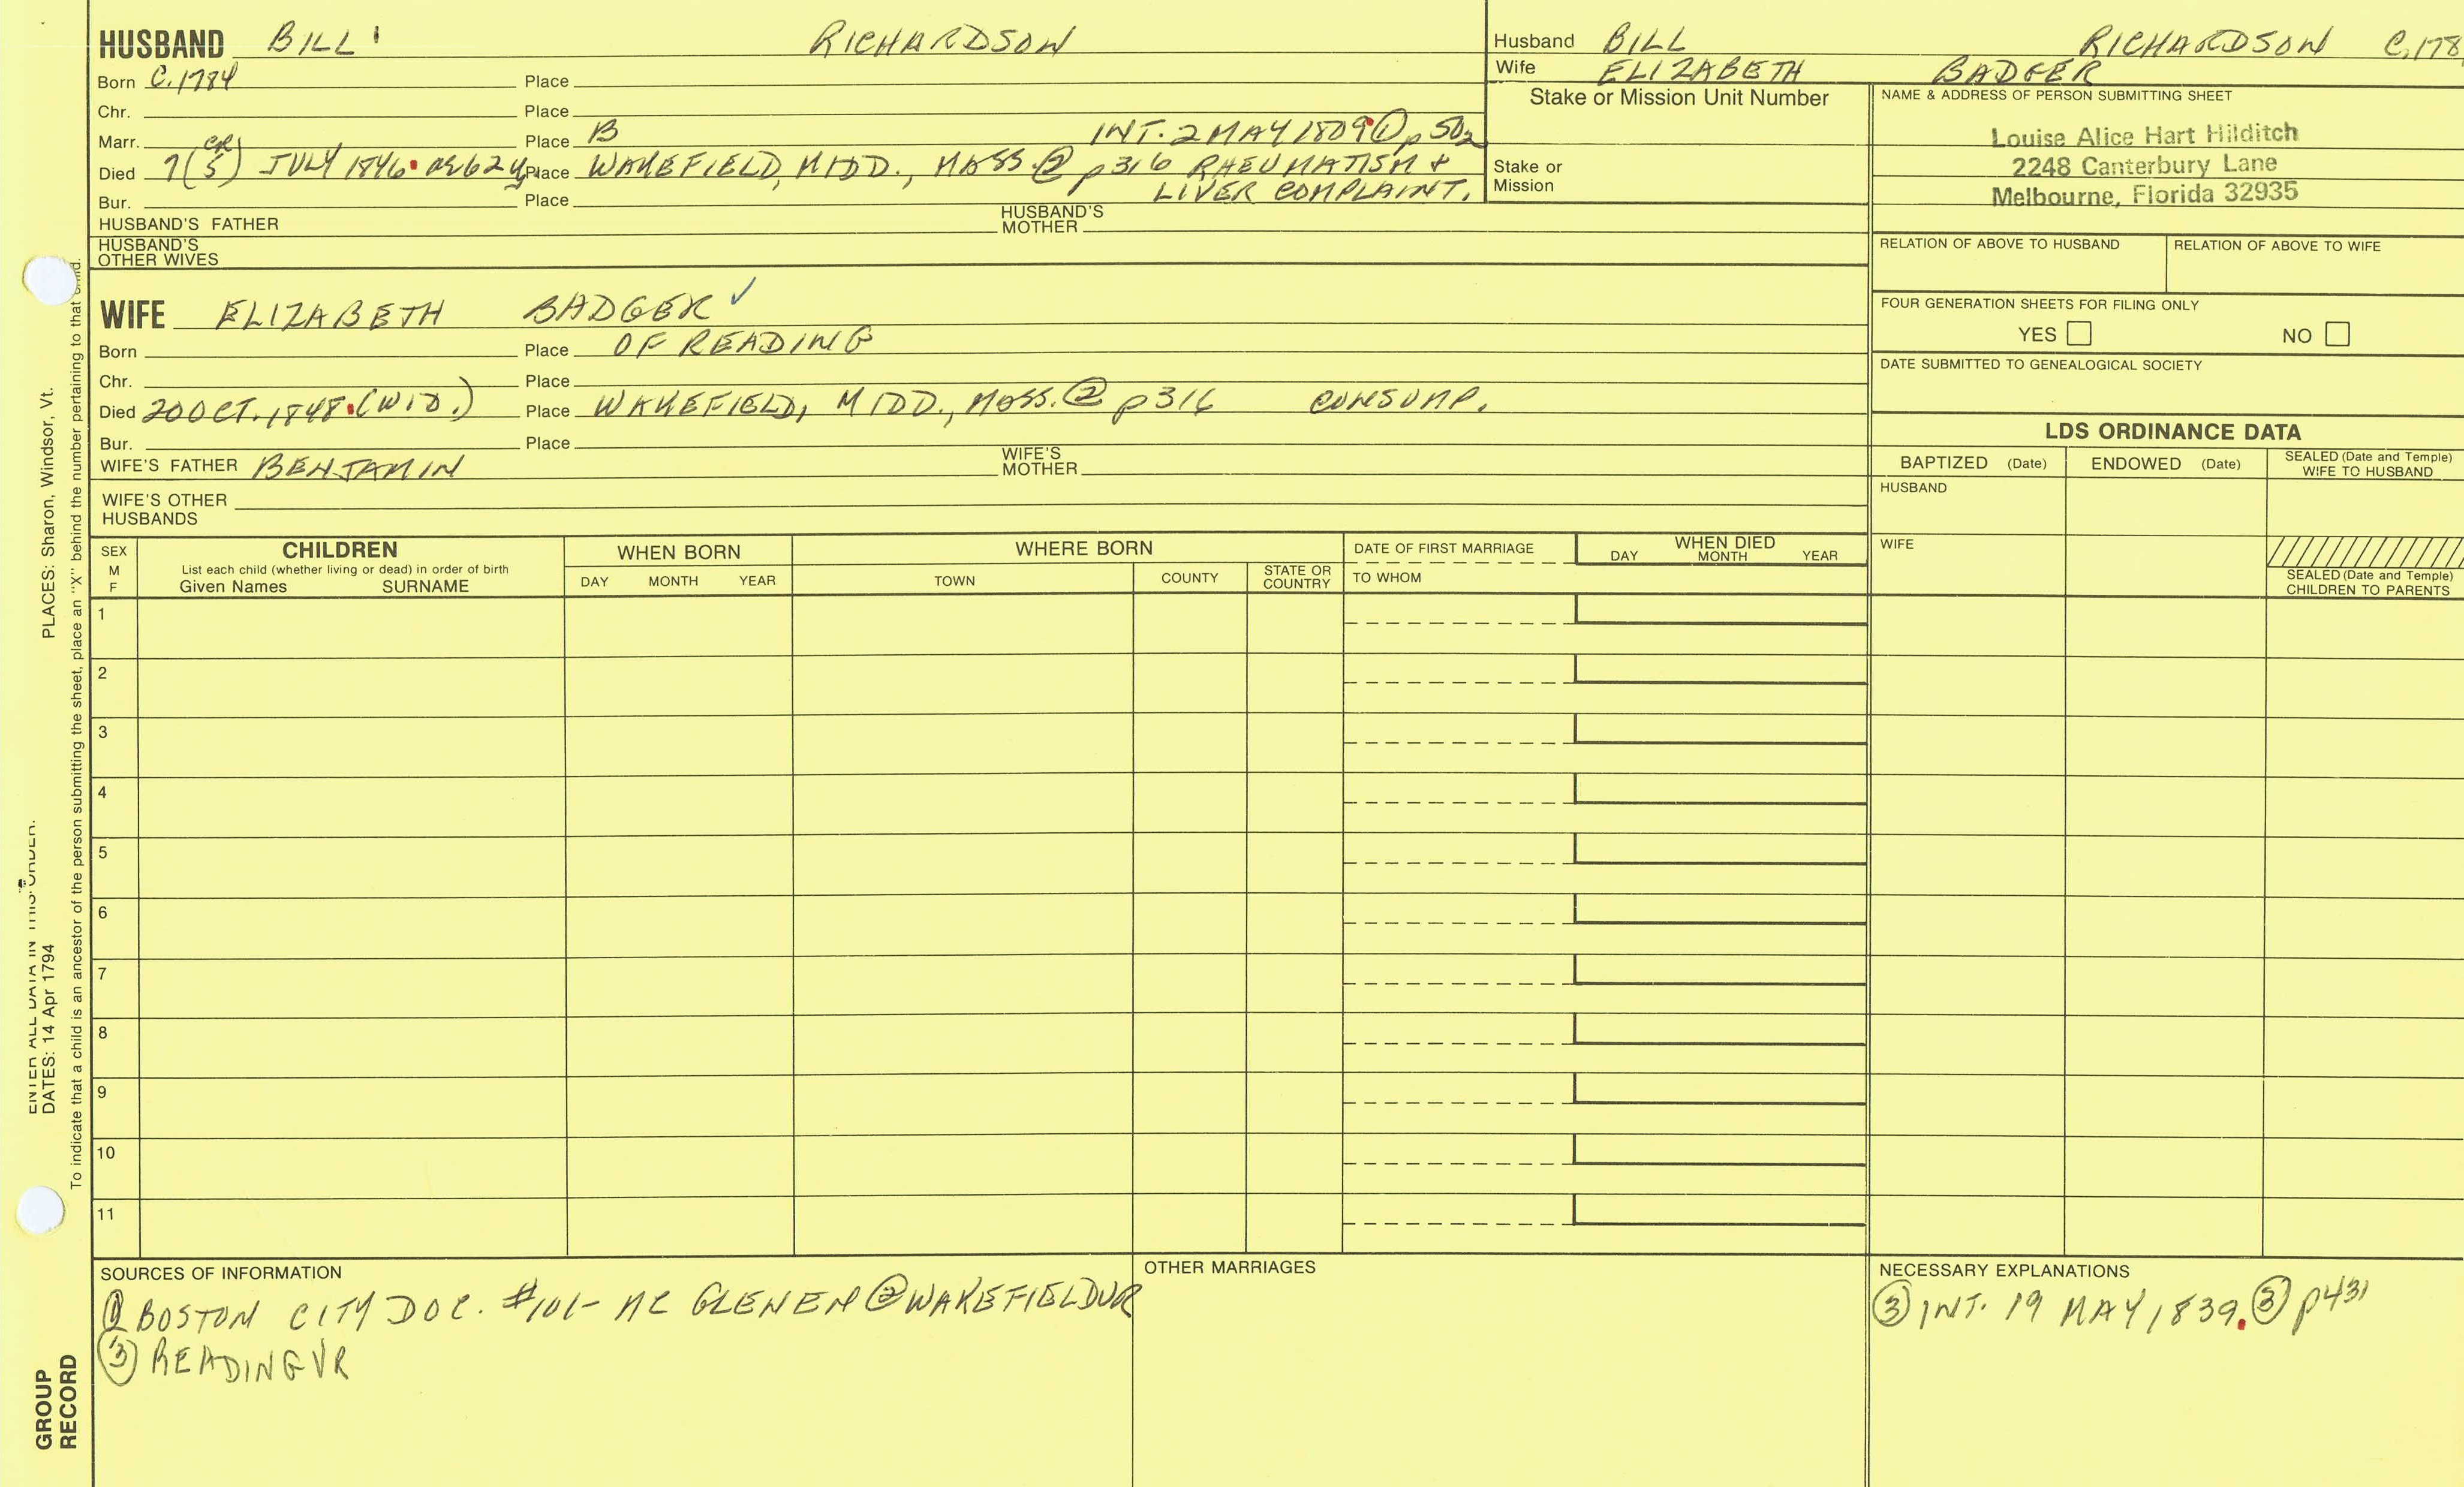 HUSBAND BILL RICHARDSON
Born C. 1784 Place
Chr. Place
Marr. Place B INT. 2 MAY 1809 ① p 502
Died 7 (CR 5) JULY 1846. AE 62 y Place WAKEFIELD, MIDD., MASS ② p 316 RHEUMATISM &
LIVER COMPLAINT.
Bur. Place
HUSBAND'S FATHER HUSBAND'S MOTHER
HUSBAND'S OTHER WIVES
Husband BILL RICHARDSON C. 178
Wife ELIZABETH BADGER
Stake or Mission Unit Number
Stake or
Mission
NAME & ADDRESS OF PERSON SUBMITTING SHEET
Louise Alice Hart Hilditch
2248 Canterbury Lane
Melbourne, Florida 32935
RELATION OF ABOVE TO HUSBAND RELATION OF ABOVE TO WIFE
FOUR GENERATION SHEETS FOR FILING ONLY
YES NO
DATE SUBMITTED TO GENEALOGICAL SOCIETY
WIFE ELIZABETH BADGER ✓
Born Place OF READING
Chr. Place
Died 20 OCT. 1848. (WID.) Place WAKEFIELD, MIDD., MASS. ② p 316 CONSUMP.
Bur. Place
WIFE'S FATHER BENJAMIN WIFE'S MOTHER
WIFE'S OTHER
HUSBANDS
LDS ORDINANCE DATA
BAPTIZED (Date) ENDOWED (Date) SEALED (Date and Temple) WIFE TO HUSBAND
HUSBAND
WIFE
SEALED (Date and Temple)
CHILDREN TO PARENTS
SEX
M
F
CHILDREN
List each child (whether living or dead) in order of birth
Given Names SURNAME
WHEN BORN
DAY MONTH YEAR
WHERE BORN
TOWN COUNTY STATE OR COUNTRY
DATE OF FIRST MARRIAGE
TO WHOM
WHEN DIED
DAY MONTH YEAR
1
2
3
4
5
6
7
8
9
10
11
SOURCES OF INFORMATION
① BOSTON CITY DOC. #101- MC GLENEN ② WAKEFIELD VR
③ READING VR
OTHER MARRIAGES
NECESSARY EXPLANATIONS
③ INT. 19 MAY 1839. ③ p 431
PLACES: Sharon, Windsor, Vt.
ENTER ALL DATA IN THIS ORDER:
DATES: 14 Apr 1794
To indicate that a child is an ancestor of the person submitting the sheet, place an "X" behind the number pertaining to that child.
GROUP
RECORD